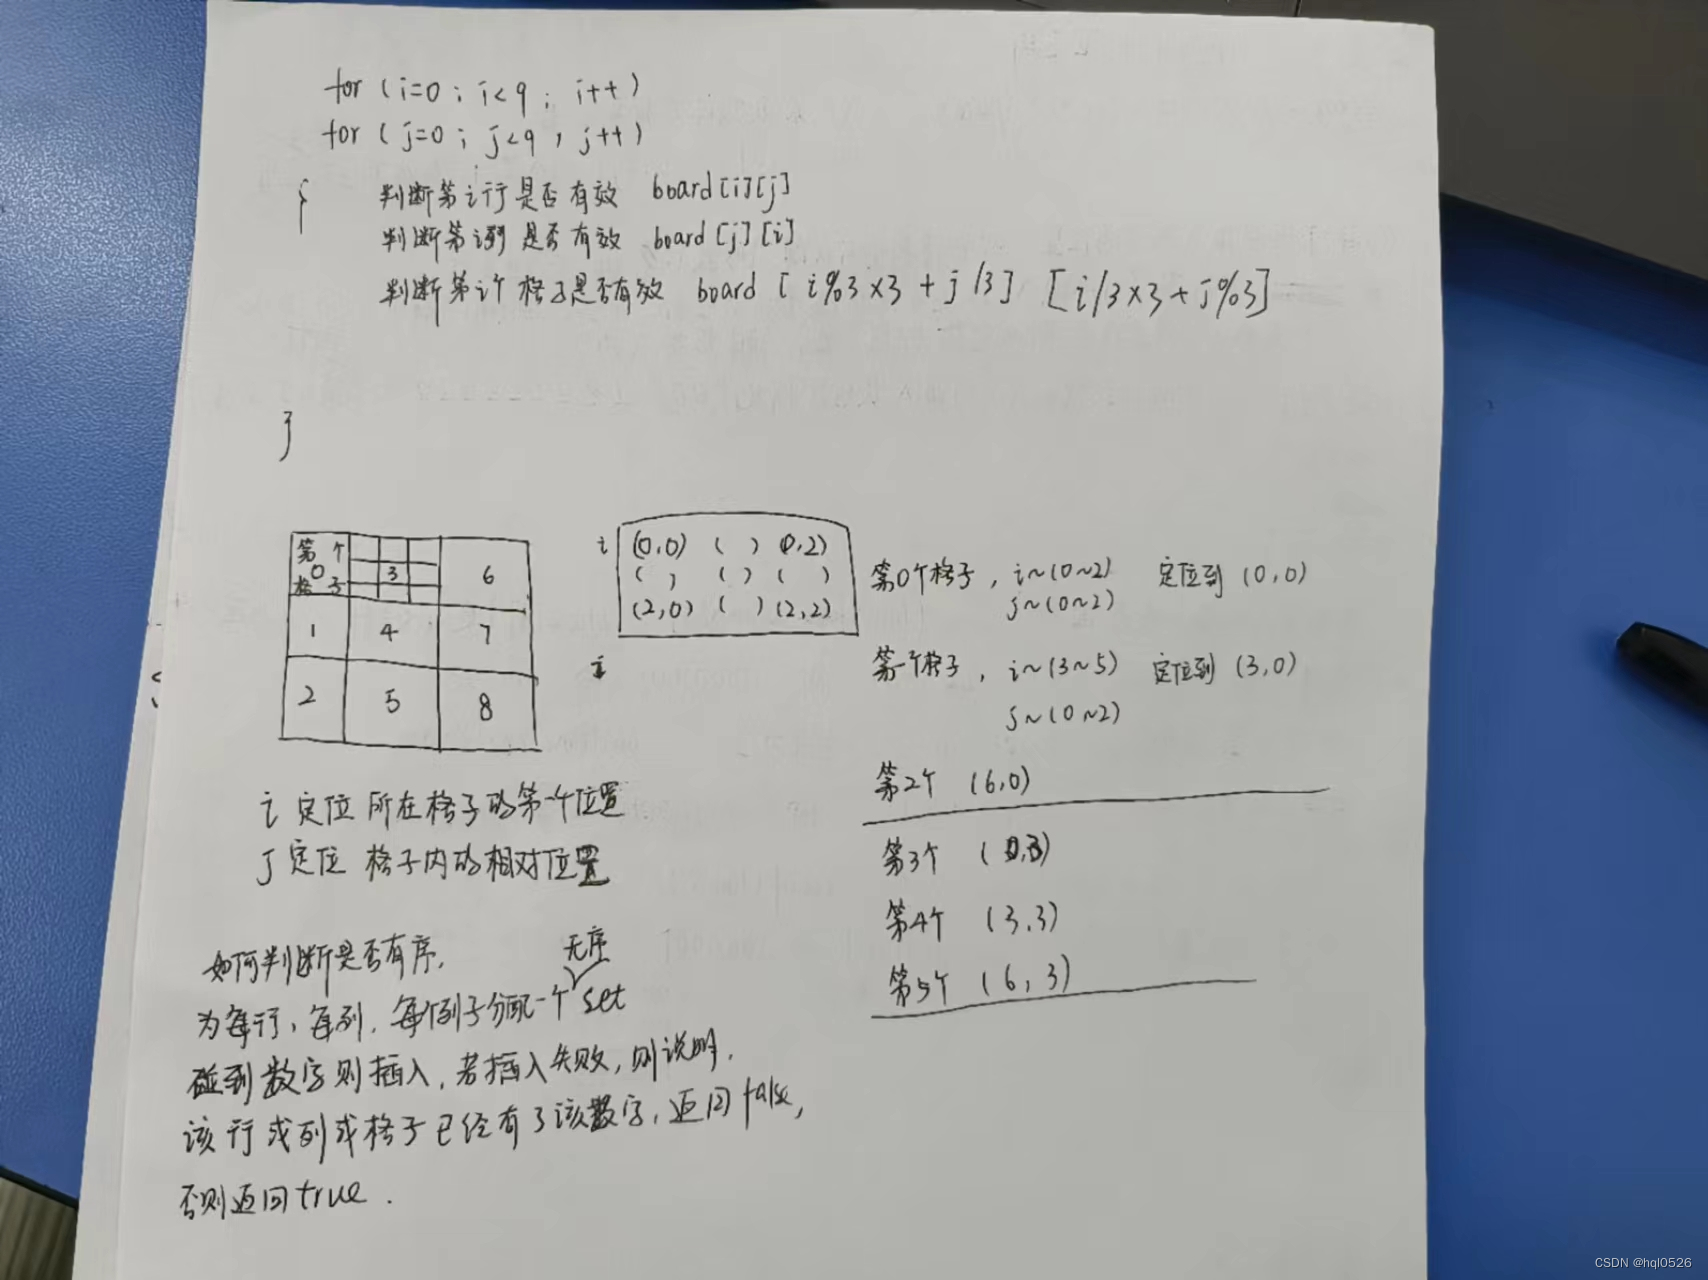 for (i=0; i<9; i++)
for (j=0; j<9, j++)
{
判断第i行是否有效 board[i][j]
判断第i列是否有效 board[j][i]
判断第i个格子是否有效 board [i%3×3+j/3] [i/3×3+j%3]
}
第0个格子 3 6
1 4 7
2 5 8
i (0,0) ( ) (0,2)
( ) ( ) ( )
(2,0) ( ) (2,2)
第0个格子, i~(0~2) 定位到 (0,0)
j~(0~2)
第一个格子, i~(3~5) 定位到 (3,0)
j~(0~2)
第2个 (6,0)
第3个 (0,3)
第4个 (3,3)
第5个 (6,3)
i 定位所在格子的第一个位置
j 定位 格子内的相对位置
如何判断是否有序.
无序
为每行, 每列, 每个例子分配一个set
碰到数字则插入, 若插入失败, 则说明,
该行或列或格子已经有了该数字, 返回false,
否则返回true.
CSDN @hql0526